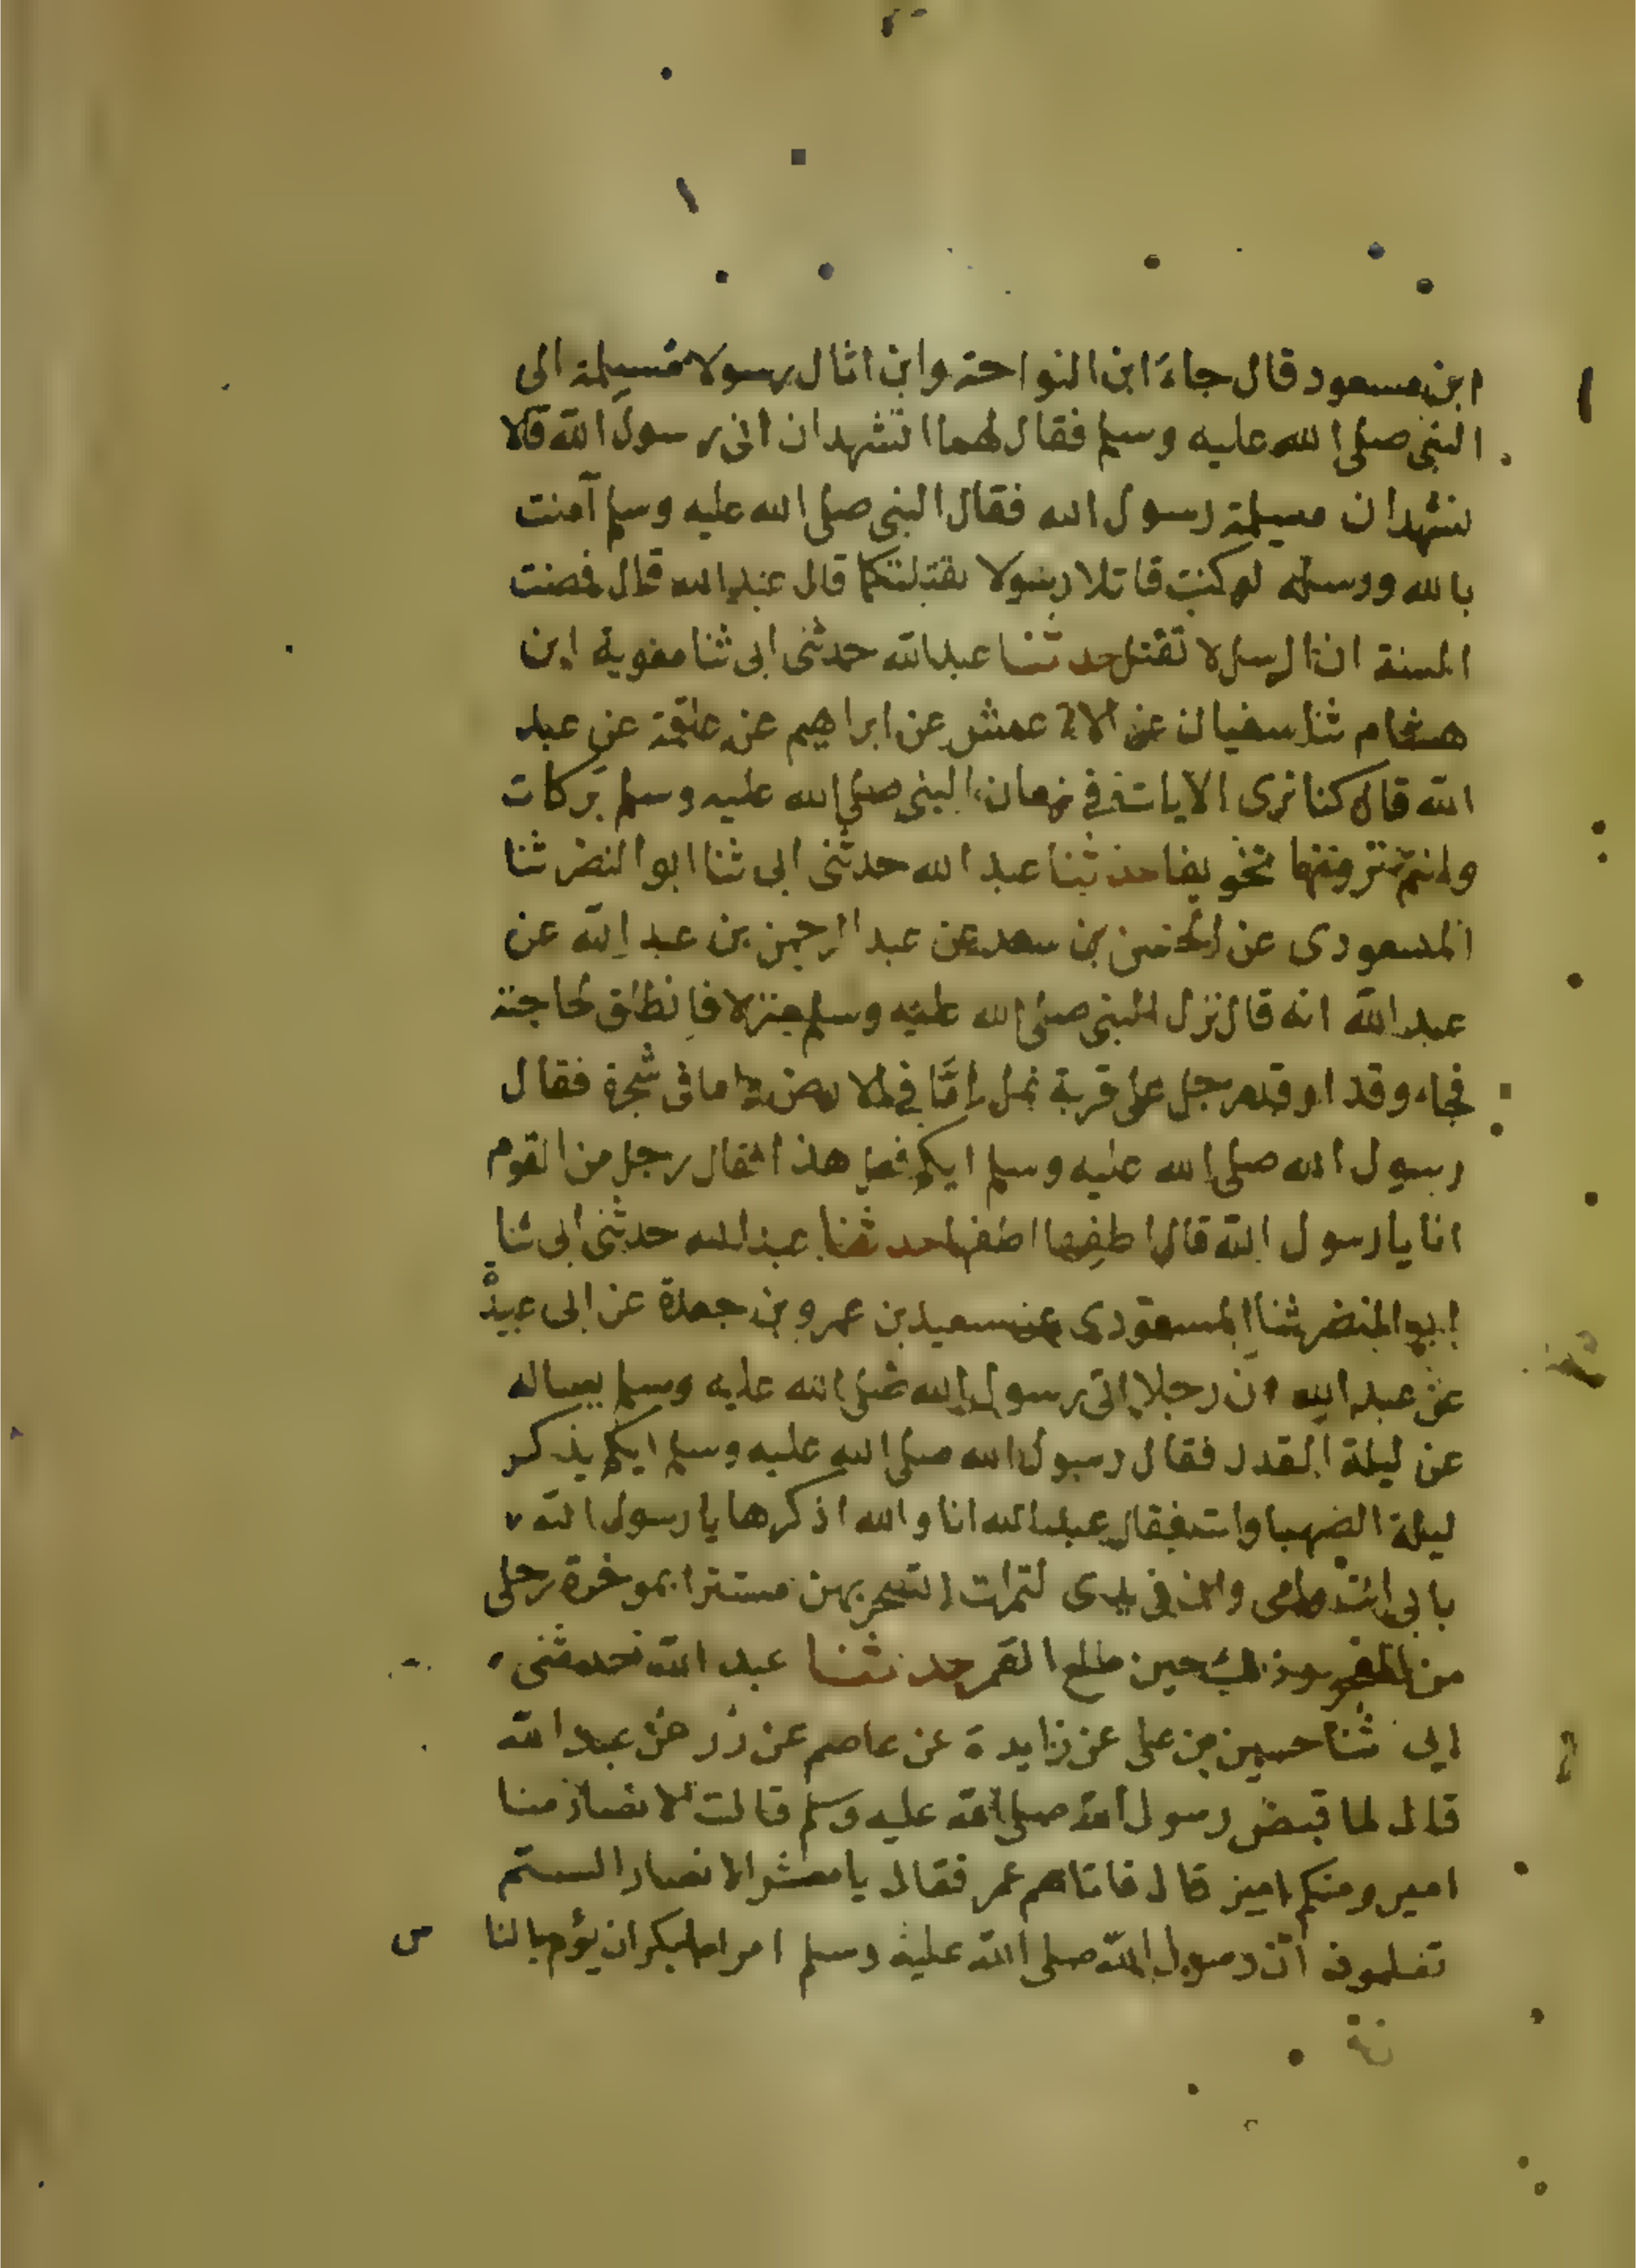 ابن مسعود قال جاء ابن النواحة وابن اثال رسولا مسيلمة الى
النبي صلى الله عليه وسلم فقال لهما اتشهدان انى رسول الله قالا
نشهد ان مسيلمة رسول الله فقال النبي صلى الله عليه وسلم آمنت
بالله ورسله لو كنت قاتلا رسولا لقتلتكما قال عبد الله قال فمضت
السنة ان الرسل لا تقتل حدثنا عبد الله حدثنى ابى ثنا معوية ابن
هشام ثنا سفيان عن الاعمش عن ابراهيم عن علقمة عن عبد
الله قال كنا نرى الايات فى زمان النبي صلى الله عليه وسلم بركات
وانتم ترونها تخويفا حدثنا عبد الله حدثنى ابى ثنا ابو النضر ثنا
المسعودى عن الحسن بن سعد عن عبد الرحمن بن عبد الله عن
عبد الله انه قال نزل النبي صلى الله عليه وسلم منزلا فانطلق لحاجته
فجاء وقد اوقد رجل على قرية نمل اما فى الارض واما فى شجرة فقال
رسول الله صلى الله عليه وسلم ايكم فعل هذا فقال رجل من القوم
انا يا رسول الله قال اطفها اطفها حدثنا عبد الله حدثنى ابى ثنا
ابو النضر ثنا المسعودى عن سعيد بن عمرو بن جعدة عن ابى عبيدة
عن عبد الله ان رجلا اتى رسول الله صلى الله عليه وسلم يساله
عن ليلة القدر فقال رسول الله صلى الله عليه وسلم ايكم يذكر
ليلة الصهباوات فقال عبد الله انا والله اذكرها يا رسول الله
بابى انت وامى وان فى يدى لتمرات اتسحر بهن مستترا بموخرة رحلى
من الفجر وذلك حين طلع القمر حدثنا عبد الله حدثنى
ابى ثنا حسين بن على عن زايدة عن عاصم عن زر عن عبد الله
قال لما قبض رسول الله صلى الله عليه وسلم قالت الانصار منا
امير ومنكم امير قال فاتاهم عمر فقال يا معشر الانصار الستم
تعلمون ان رسول الله صلى الله عليه وسلم امر ابا بكر ان يؤم بالنا س